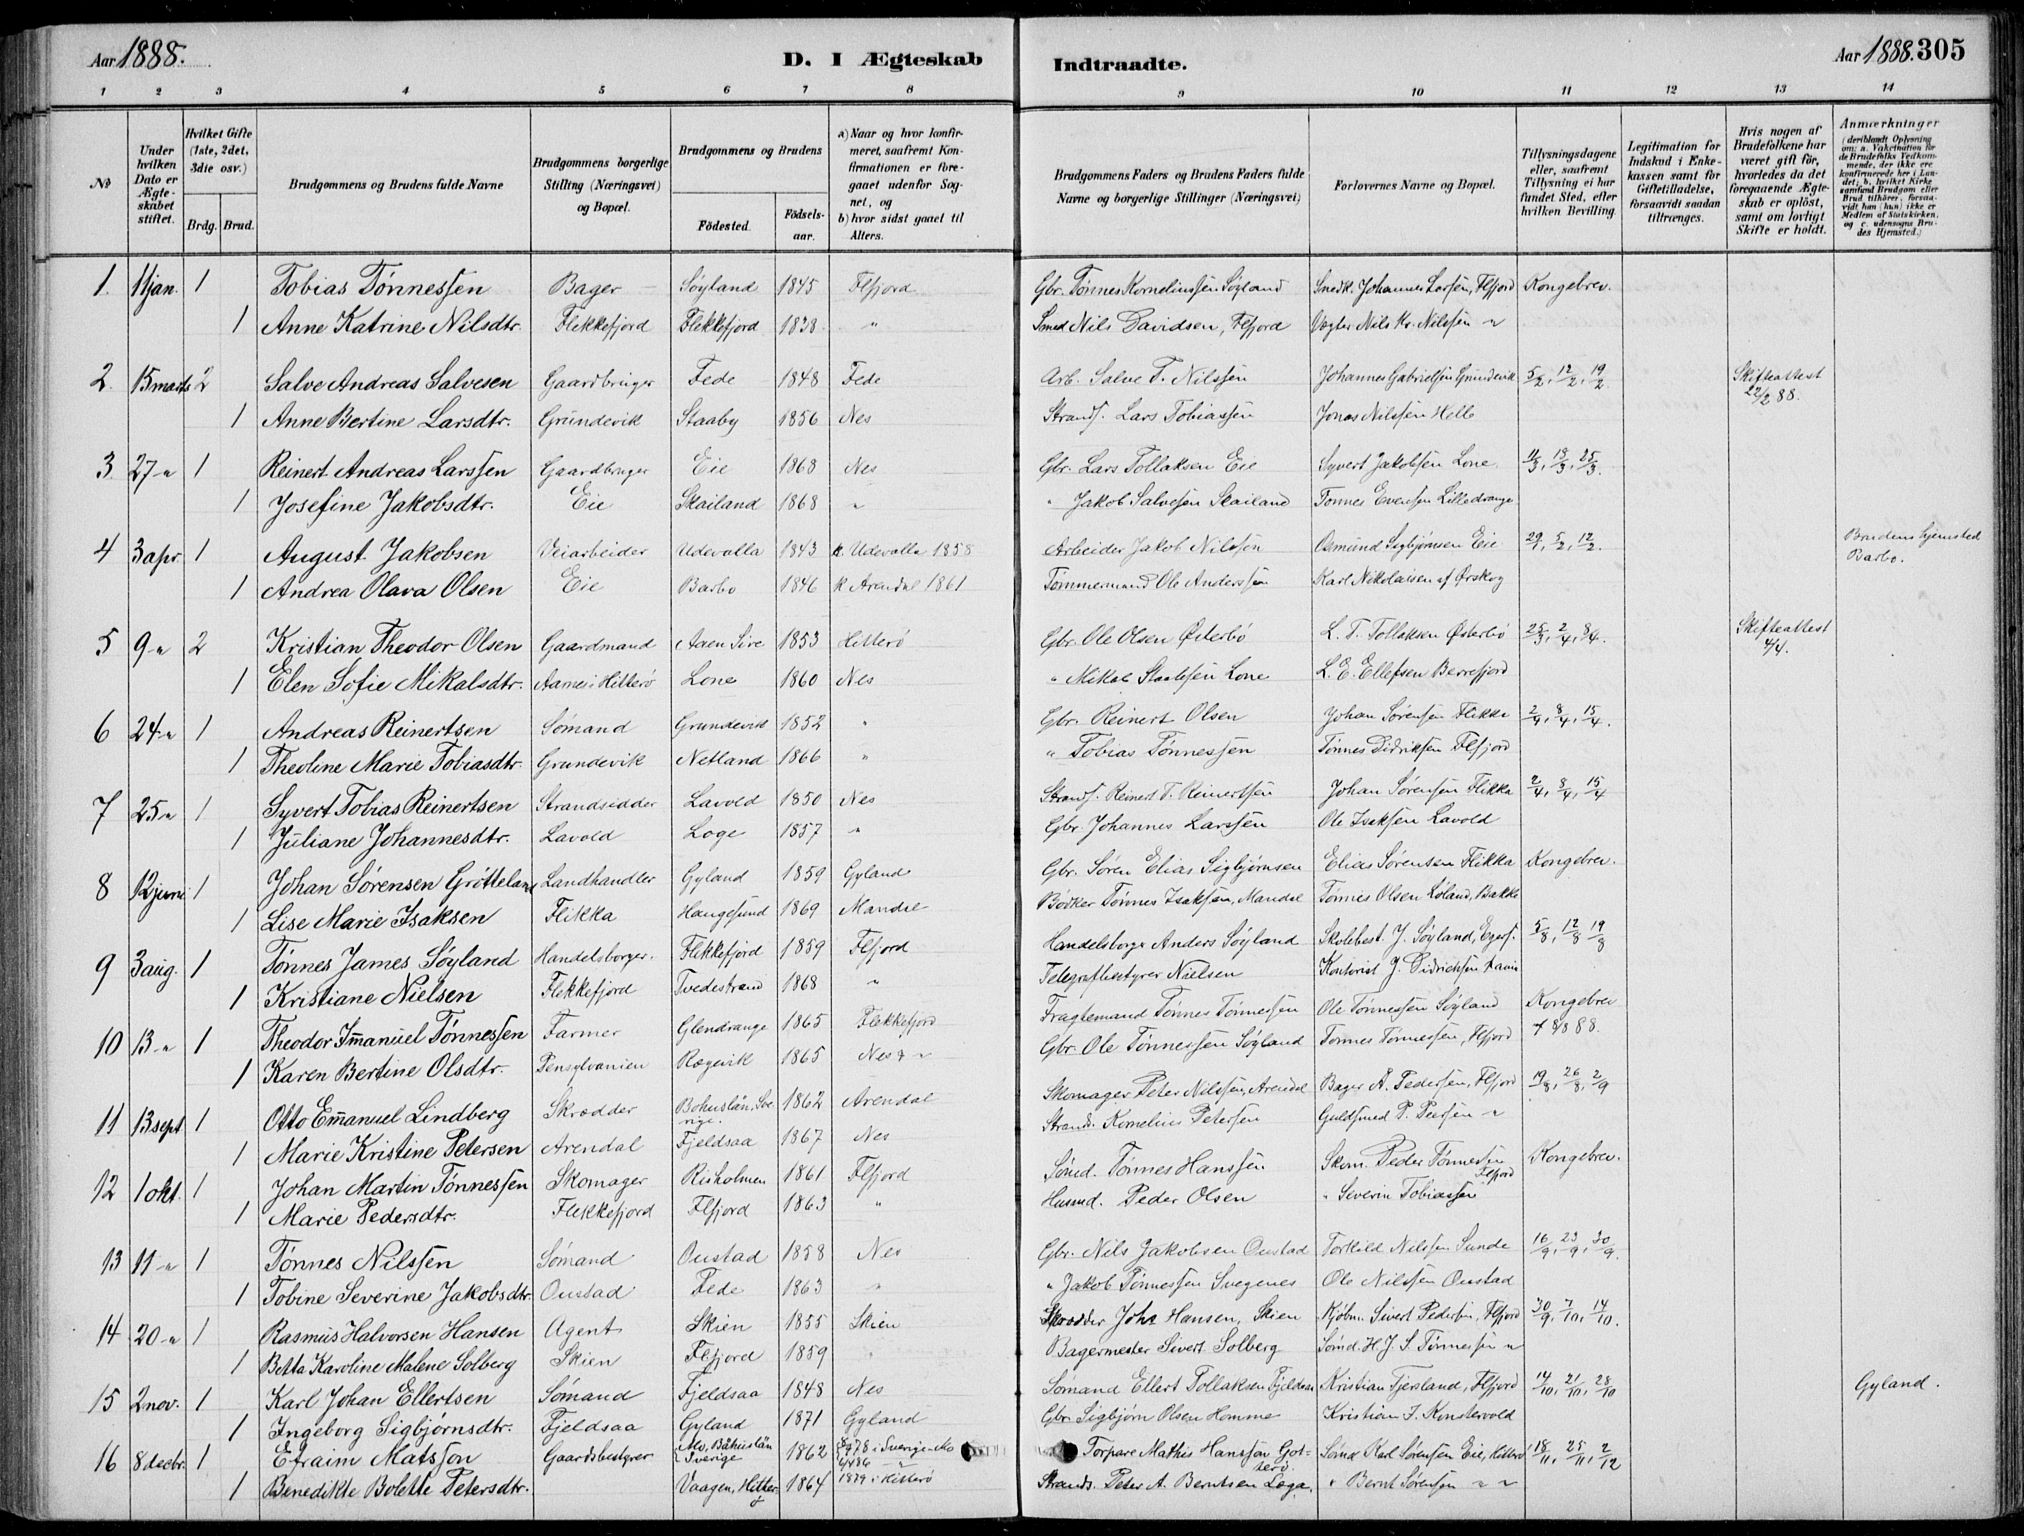 Aar 1888. D. I Ægteskab Indtraadte. Aar 1888. 305
1 2 3 4 5 6 7 8 9 10 11 12 13 14
No
Under hvilken Dato er Ægte-skabet stiftet.
Hvilket Gifte (1ste, 2det, 3die osv.)
Brdg. Brud.
Brudgommens og Brudens fulde Navne
Brudgommens borgerlige Stilling (Næringsvei) og Bopæl.
Brudgommens og Brudens
Fødested. Fødsels-aar.
a) Naar og hvor konfir-meret, saafremt Kon-firmationen er fore-gaaet udenfor Sog-net, og
b) hvor sidst gaaet til Alters.
Brudgommens Faders og Brudens Faders fulde Navne og borgerlige Stillinger (Næringsvei)
Forlovernes Navne og Bopæl.
Tillysningsdagene eller, saafremt Tillysning ei har fundet Sted, efter hvilken Bevilling.
Legitimation for Indskud i Enke-kassen samt for Giftetilladelse, forsaavidt saadan tiltrænges.
Hvis nogen af Brudefolkene har været gift før, hvorledes da det foregaaende Ægte-skab er opløst, samt om lovligt Skifte er holdt.
Anmærkninger (deriblandt Oplysning om: a. Vakcination for de Brudefolks Vedkom-mende, der ikke ere konfirmerede her i Lan-det; b. hvilket Kirke-samfund Brudgom eller Brud tilhører, forsaa-vidt han (hun) ikke er Medlem af Statskirken, og c. udensogns Bru-des Hjemsted.)
1. 11 jan. 1 Tobias Tønnessen Bager Søyland 1845 Flfjord Gbr. Tønnes Korneliussen Søyland Snedk. Johannes Larsen, Flfjord Kongebrev.
1 Anne Katrine Nilsdtr. Flekkefjord Flekkefjord 1838 " Smed Nils Davidsen, Flfjord Vægter Nils Kr. Nilssen "
2. 15 marts 2 Salve Andreas Salvesen Gaardbruger Fede 1848 Fede Arb. Salve T. Nilssen Johannes Gabrielsen Grundevik 5/2, 12/2, 19/2. Skifteattest
1 Anne Bertine Larsdtr. Grundevik Staaby 1856 Nes Strands. Lars Tobiassen Jonas Nilssen Helle 22/2 88.
3 27 " 1 Reinert Andreas Larssen Gaardbruger Eie 1868 Nes Gbr. Lars Tollaksen Eie Syvert Jakobsen Lone 11/3, 18/3, 25/3.
1 Josefine Jakobsdtr. Eie Skailand 1868 " " Jakob Salvesen Skailand Tønnes Evensen Lilledrange
4 3 apr. 1 August Jakobsen Veiarbeider Udevalla 1843 k. Udevalla 1858 Arbeider Jakob Nilsson Osmund Sigbjørnsen Eie 29/1, 5/2, 12/2. Brudens hjemsted
1 Andrea Olava Olsen Eie Barbo 1846 k Arendal 1861 Tømmermand Ole Anderssen Karl Nikolaisen af Ørskog Barbo.
5 9 " 2 Kristian Theodor Olsen Gaardmand Aaen Sire 1853 Hitterø Gbr. Ole Olsen Østerbø L. T. Tollaksen Østerbø 25/3, 2/4, 8/4. Skifteattest
1 Elen Sofie Mikalsdtr. Aamei Hitterø Lone 1860 Nes " Mikal Lone L. E. Ellefsen Berrefjord 4/4.
6 24 " 1 Andreas Reinertsen Sømand Grundevik 1852 " Gbr. Reinert Olsen Johan Sørensen Flikka 2/4, 8/4, 15/4.
1 Theoline Marie Tobiasdtr. Grundevik Netland 1866 " " Tobias Tønnessen Tønnes Didriksen Flfjord
7 25 " 1 Syvert Tobias Reinertsen Strandsidder Lavold 1850 Nes Strands. Reinert T. Reinertsen Johan Sørensen Flikka 2/4, 8/4, 15/4
1 Juliane Johannesdtr. Lavold Loge 1857 " Gbr. Johannes Larssen Ole Isaksen Lavold
8 12 juni 1 Johan Sørensen Grøtteland Landhandler Gyland 1859 Gyland Gbr. Søren Elias Sigbjørnsen Elias Sørensen Flikka Kongebrev.
1 Lise Marie Isaksen Flikka Haugesund 1869 Mandal Bødker Tønnes Isaksen, Mandal Tønnes Olsen Løland, Bakke
9 3 aug. 1 Tønnes James Søyland Handelsborger. Flekkefjord 1859 Flfjord Handelsborger Anders Søyland Skolebest. J. Søyland, Egers. 5/8, 12/8 19/8
1 Kristiane Nielsen Flekkefjord Tvedestrand 1868 " Telegrafbestyrer Nielsen Kontorist J. Didrichsen
10 13 " 1 Theodor Immanuel Tønnessen Farmer Glendrange 1865 Flekkefjord Fragtemand Tønnes Tønnessen Ole Tønnessen Søyland Kongebrev
1 Karen Bertine Olsdtr. Pensylvanien Rægevik 1865 Nes Gbr. Ole Tønnessen Søyland Tønnes Tønnessen, Flfjord 8/8 88.
11 13 sept 1 Otto Emanuel Lindberg Skrædder Bohuslän, Sverige. 1862 Arendal Skomager Peter Nilssen, Arendal Bager A. Pedersen, Flfjord 19/8, 26/8, 2/9
1 Marie Kristine Petersen Arendal Fjeldsaa 1867 Nes Strands. Kornelius Petersen Guldsmed P. Peersen "
12 1 okt. 1 Johan Martin Tønnessen Skomager Risholmen 1861 Flfjord Sømd. Tønnes Hanssen Skom. Peder Tønnessen Flfjord Kongebrev.
1 Marie Pedersdtr. Flekkefjord Flfjord 1863 " Husmd. Peder Olsen " Severin Tobiassen
13 11 " 1 Tønnes Nilssen Sømand Oustad 1858 Nes Gbr. Nils Jakobsen Oustad Torkild Nilssen Sunde 16/9, 23/9, 30/9.
1 Tobine Severine Jakobsdtr. Oustad Fede 1863 " " Jakob Tønnessen Svegenes Ole Nilssen Oustad
14 20 " 1 Rasmus Halvorsen Hansen Agent Skien 1855 Skien Skrædder Johs Hansen, Skien Kjøbm. Sivert Pedersen, Flfjord 30/9, 7/10, 14/10.
1 Betha Karoline Malene Solberg Skien Flfjord 1859 " Bagermester Sivert Solberg Sømd. H. J. S. Tønnessen "
15 2 nov. 1 Karl Johan Ellertsen Sømand Fjeldsaa 1848 Nes Sømand Ellert Tollaksen Fjeldsaa Kristian Tjersland, Flfjord 14/10, 21/10, 28/10 Gyland.
1 Ingeborg Sigbjørnsdtr. Fjeldsaa Gyland 1871 Gyland Gbr. Sigbjørn Olsen Homme Kristian J. Konstervold
16 8 decbr. 1 Efraim Matsson Gaardsbestyrer Mo, Båhuslän Sverige 1862 1878 i Sverige - Mo Torpare Mathis Hansson Sømd Karl Sørensen Eie, Hitterø 18/11, 25/11, 2/12
1 Benedikte Bolette Petersdtr. Vaagen, Hitterø 1864 1879 i Hitterø Strands. Peter A. Berntsen Løga. " Bernt Sørensen " "